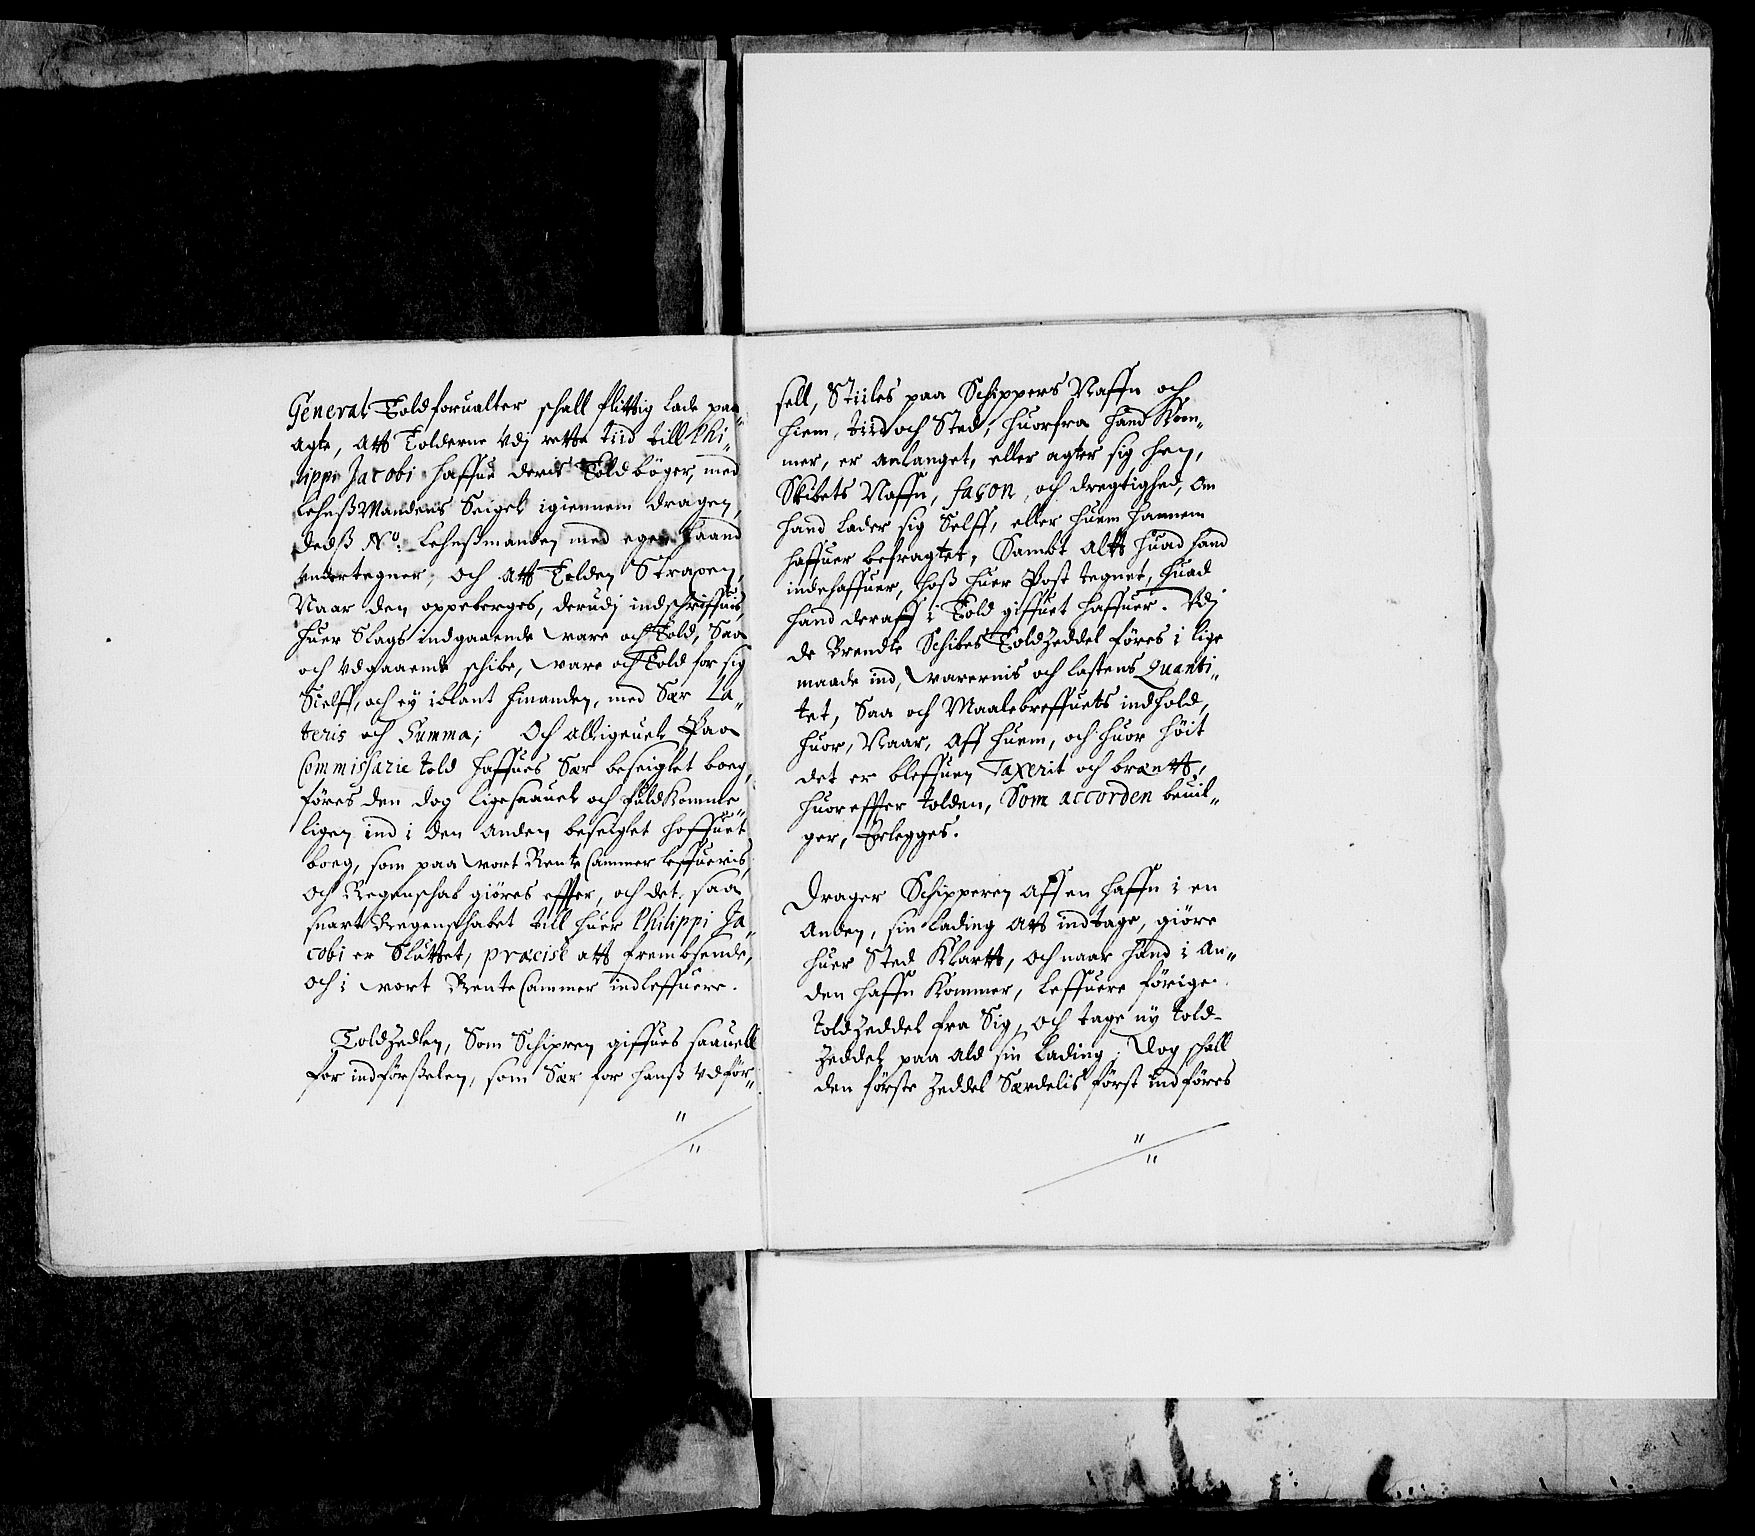 General Toldforualter schall flittig lade paa„
agte, Att Tolderne vdj rette tiid till Phi„
lippi Jacobi haffue deris Toldbøger, med
LehnßMandens Seigel igiennem dragen,
dedß No. Lehnßmanden med egen haand
vndertegner, och Att Tolden Straxen,
Naar den oppeberges, derudj indschriffuis,
huer Slags indgaaende ware och Told, Saa
och vdgaaende schibe, ware och Told for sig
Sielff, och ey iblant hinanden, med Sær La„
teris och Summa; Och alligeuel Paa
Commissarie told haffues Sær beseiglet boeg,
føres den dog ligesaauel och fuldkomme„
ligen ind i den Anden beseiglet hoffuet
boeg, som paa wort Rente Cammer leffueris,
Och Regenschab giøres effter, och det, saa
snart Regenschabet till huer Philippi Ja„
cobi er Sluttet, præcisè att frembsende,
och i wort Rente Cammer indleffuere.
Toldzedlen, Som Schipren giffues saauell
for indførßelen, som Sær for hanß vdfør„
sell, Stiiles paa Schippers Naffn och
hiem, tiid och Sted, huorfra hand kom„
mer, er anlanget, eller agter sig hen,
Skibets Naffn, façon, och dregtighed, Om
hand lader sig Selff, eller huem hannem
haffuer befragtet, Sambt alt huad hand
indehaffuer, hoß huer Post tegnet, huad
hand deraff i Told giffuet haffuer. Vdj
de Brendte Schibes Toldzeddel føres i lige
maade ind, warernis och lastens Quanti„
tet, Saa och Maalebreffuets indhold,
huor, Naar, Aff huem, och huor høit
det er bleffuen Taxerit och brændt,
huoreffter tolden, Som accorden beuil„
ger, Erlegges.
Drager Schipperen aff en haffn i en
Anden, sin Lading att indtage, giøre
huer Sted klart, och naar hand i An„
den haffn kommer, leffuere førige
toldzeddel fra Sig, och tage ny told-
zeddel paa ald sin Lading; Dog schall
den første zeddel Særdelis først indføres